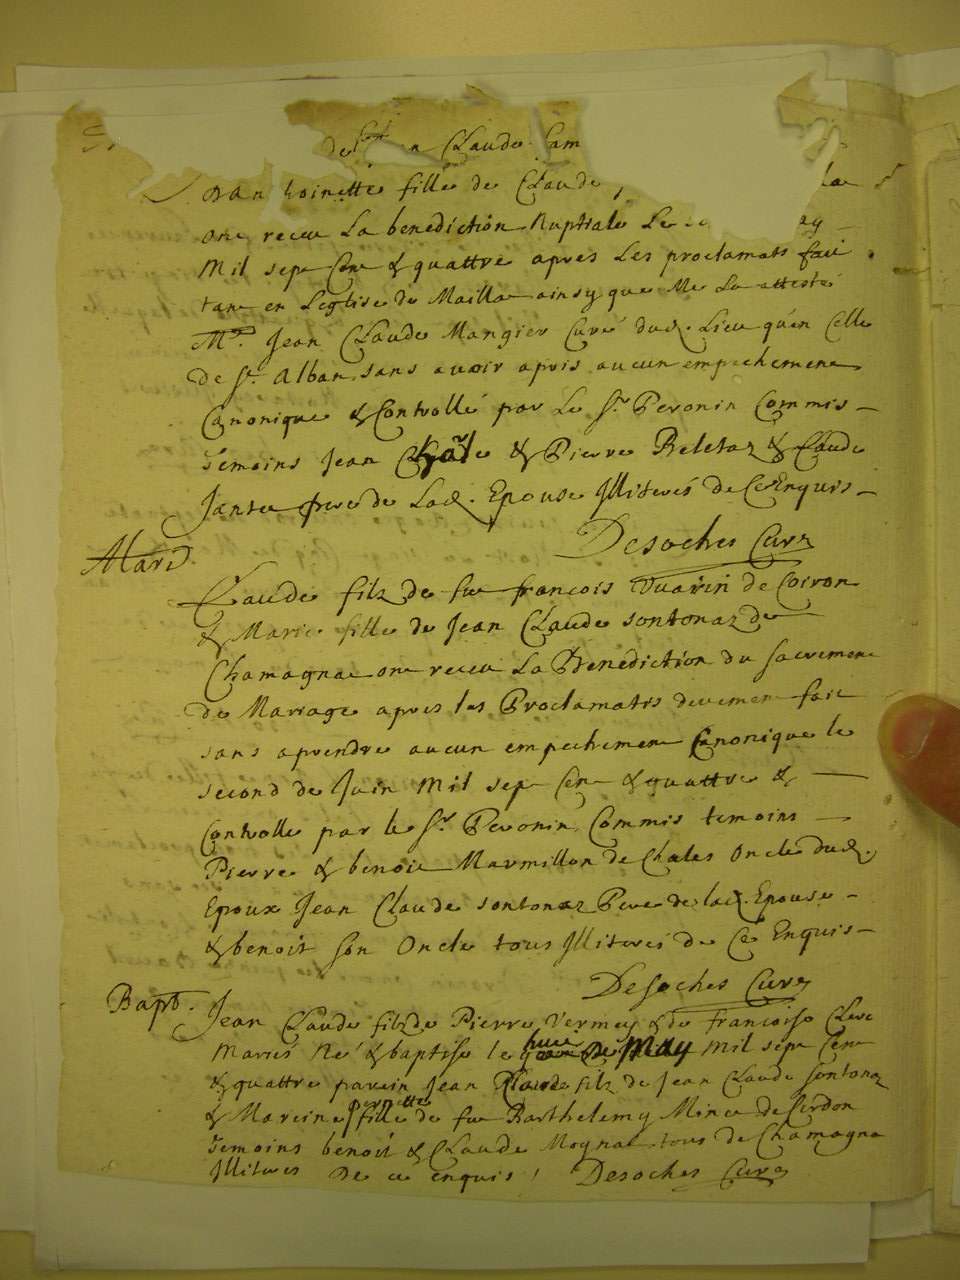 de Claude
toinette fille de Claude la
ont receu La benediction Nuptiale Le ay
Mil sept Cent & quattre apres Les proclamats fait
tant en L'eglise de Mailla ainsy que Me La attesté
Mr. Jean Claude Mangier Curé dud. Lieu qu'en Celle
de St. Alban sans avoir apris aucun empechement
Canonique & Controllé par Le Sr. Peronin Commis
Temoins Jean & Pierre Beletaz & Claude
pere de Lad. Epouse Illiterés de Ce Enquis
Desoches Curé
Mari
Claude filz de fut francois Vuarin de Coiron
& Marie fille de Jean Claude Sontonaz de
Chamagnat ont receu La Benediction du Sacrement
de Mariage apres les Proclamatis deuement fait
sans aprendre aucun empechement Canonique le
second de Juin Mil sept Cent & quattre &
Controlle par le Sr. Peronin Commis temoins
Pierre & benoit Marmillon de Chales Oncle dud.
Epoux Jean Claude Sontonaz Pere de lad. Epouse
& benoit son Oncle tous Illiterés de Ce Enquis
Desoches Curé
Bapt.
Jean Claude filz de Pierre Vermey & de Francoise Clerc
Mariés Né & baptise le huit de May Mil sept Cent
& quattre parein Jean Claude filz de Jean Claude Sontonaz
& Mareine pernette fille de fut Barthelemy Minet de Cerdon
Temoins benoit & Claude Mognat tous de Chamagna
Illiteres de ce enquis Desoches Curé